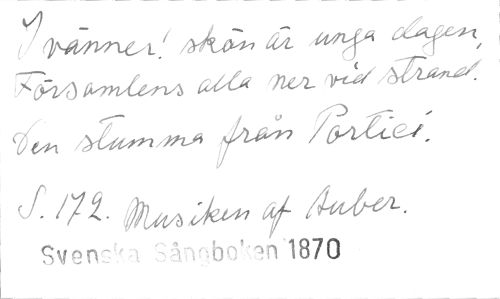 I vänner! skön är unga dagen,
Församlens alla ner vid strand.
Den stumma från Portici.
S. 172. Musiken af Auber.
Svenska Sångboken 1870